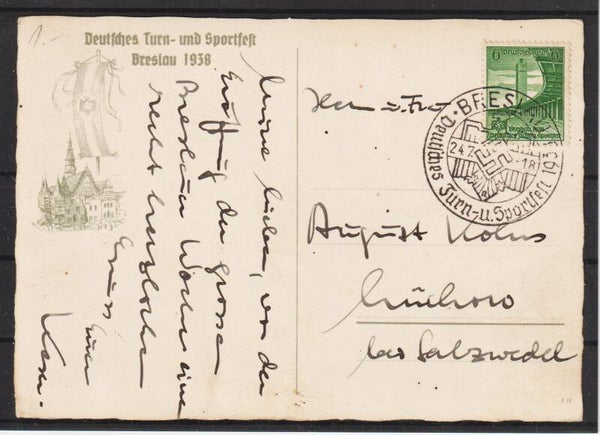 1.-
Deutsches Turn- und Sportfest
Breslau 1938
Meine lieben, von den
Eröffnung der grossen
Breslauer Woche eine
recht herzliche
Gruss
Euer
Herrn u. Frau
August
Lüchow
bei Salzwedel
6 6
BRESLAU
24.7. -18
Deutsches Turn- u. Sportfest 1938